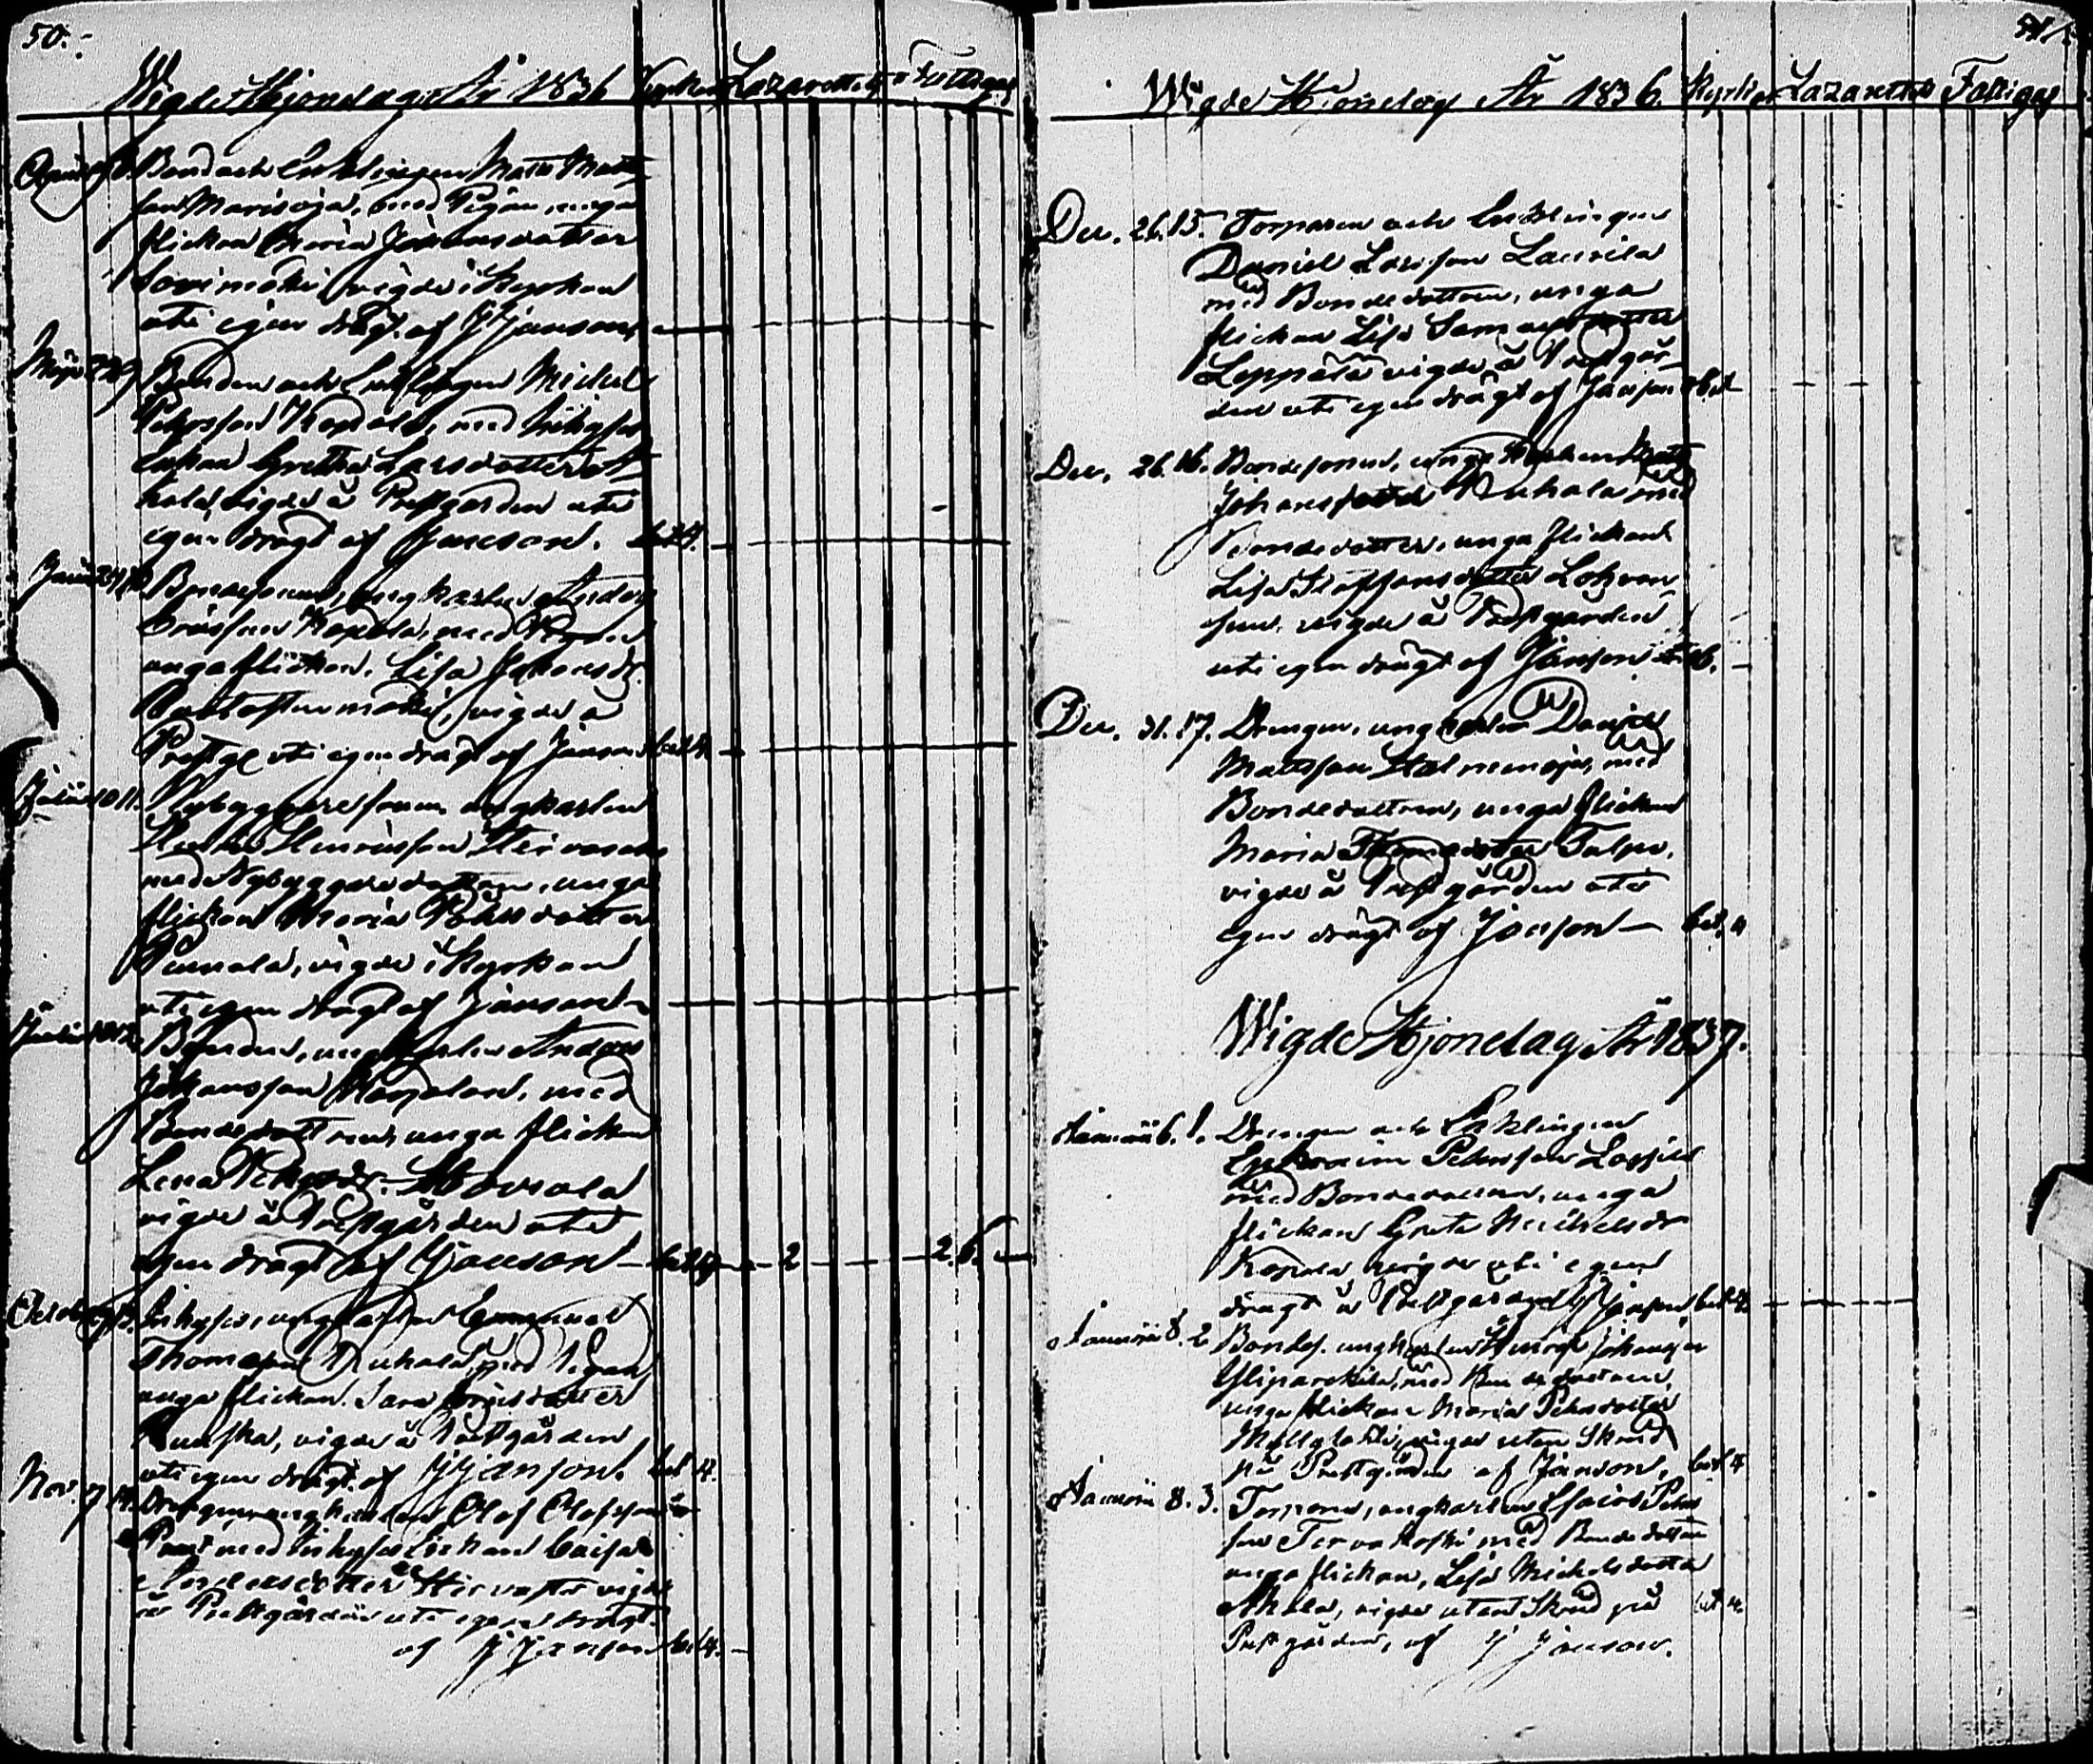 50.
Wigde Hjonelag År 1836 Kyrkan Lazarettet Fattiga
April 8. Bonden och Enklingen Matts Matts
son Marisoja, med Pigan, unga
flickan Maria Johansdotter
Sorimäki vigde i Kyrkan
uti egen drägt af J Janson
Maji 22 9 Bonden och Enklingen Michel
Pehrsson Kopsala, med Inhyses
enkan Gretha Larsdotter
vigde å Prestgården uti
egen drägt af J Janson. bet 4.
Junii 24 10 Bondesonen, ungkarlen Anders
Ersson Kopsala, med Pigan
unga flickan, Lisa Johansdr.
vigde å
Prestg. uti egen drägt af Janson bet 4.
Julii 10 11. Nybyggaresonen ungkarlen
Henric Henricsson Hirvasoja
med Nybyggaredottren, unga
flickan Maria Påhlsdotter
Pennala, vigde i Kyrkan
uti egen drägt af Janson
Julii 10 12. Bonden, ungkarlen Anders
Johansson med
Bondedottren, unga flickan
Lena Pehrsdr.
vigde å Prestgården uti
egen drägt af J Janson bet 4 2 2.6.
October 13. Inhyses, ungkarlen Emanuel
Thomasson Ruhala, med Pigan,
unga flickan Sara Ersdotter
Ruuska, vigde å Prestgården
uti egen drägt af J Janson. bet 4.
Nov. 7 14. Drengen, ungkarlen Olof Olofsson
med Inhyses Enkan Caisa
Andersdotter vigde
å Prestgården uti egen drägt
af J Janson bet 4.
51.
Wigde Hjonelag År 1836. Kyrkan Lazarettet Fattiga
Dec. 26. 15. Torparen och Enklingen
Daniel Larsson Laurila
med Bondedottren, unga
flickan Lisa Samuelsdotter
Leppälä vigde å Prestgår-
den uti egen drägt af Janson bet
Dec. 26. 16. Bondesonen, ungkarlen Matts
Johansson Ruhala med
Bondedottren, unga flickan
Lisa Staffansdotter Lohvan
sun, vigde å Prestgården
uti egen drägt af J Janson bet.
Dec. 31. 17. Drengen, ungkarlen Daniel
Mattsson Stolmenoja, med
Bondedottren, unga flickan
Maria Thomasdotter Talpo.
vigde å Prestgården uti
egen drägt af Janson bet. 4
Wigde Hjonelag År 1837.
Januarii 6. 1. Drengen och Enklingen
Ephraim Petersson Lassila
med Bondedottren, unga
flickan Greta Michelsdr
Kopsala, vigde uti egen
drägt å Prestgården af J Janson bet 4
Januarii 8. 2 Bondes. ungkarlen Henric Johansson
Yliparckila, med Bondedottren
unga flickan Maria Pehrsdotter
vigde utan Skrud
på Prestgården af Janson. bet 4
Januarii 8. 3. Torparen, ungkarlen Esaias Pehrs
son Tervakoski med Bondedottren
unga flickan, Lisa Michelsdotter
Ahola, vigde utan Skrud på bet 4
Prestgården, af J Janson.